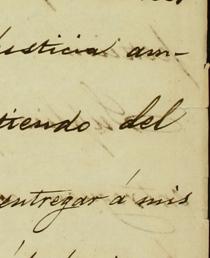 justicia am-
tiendo del
entregar á mis